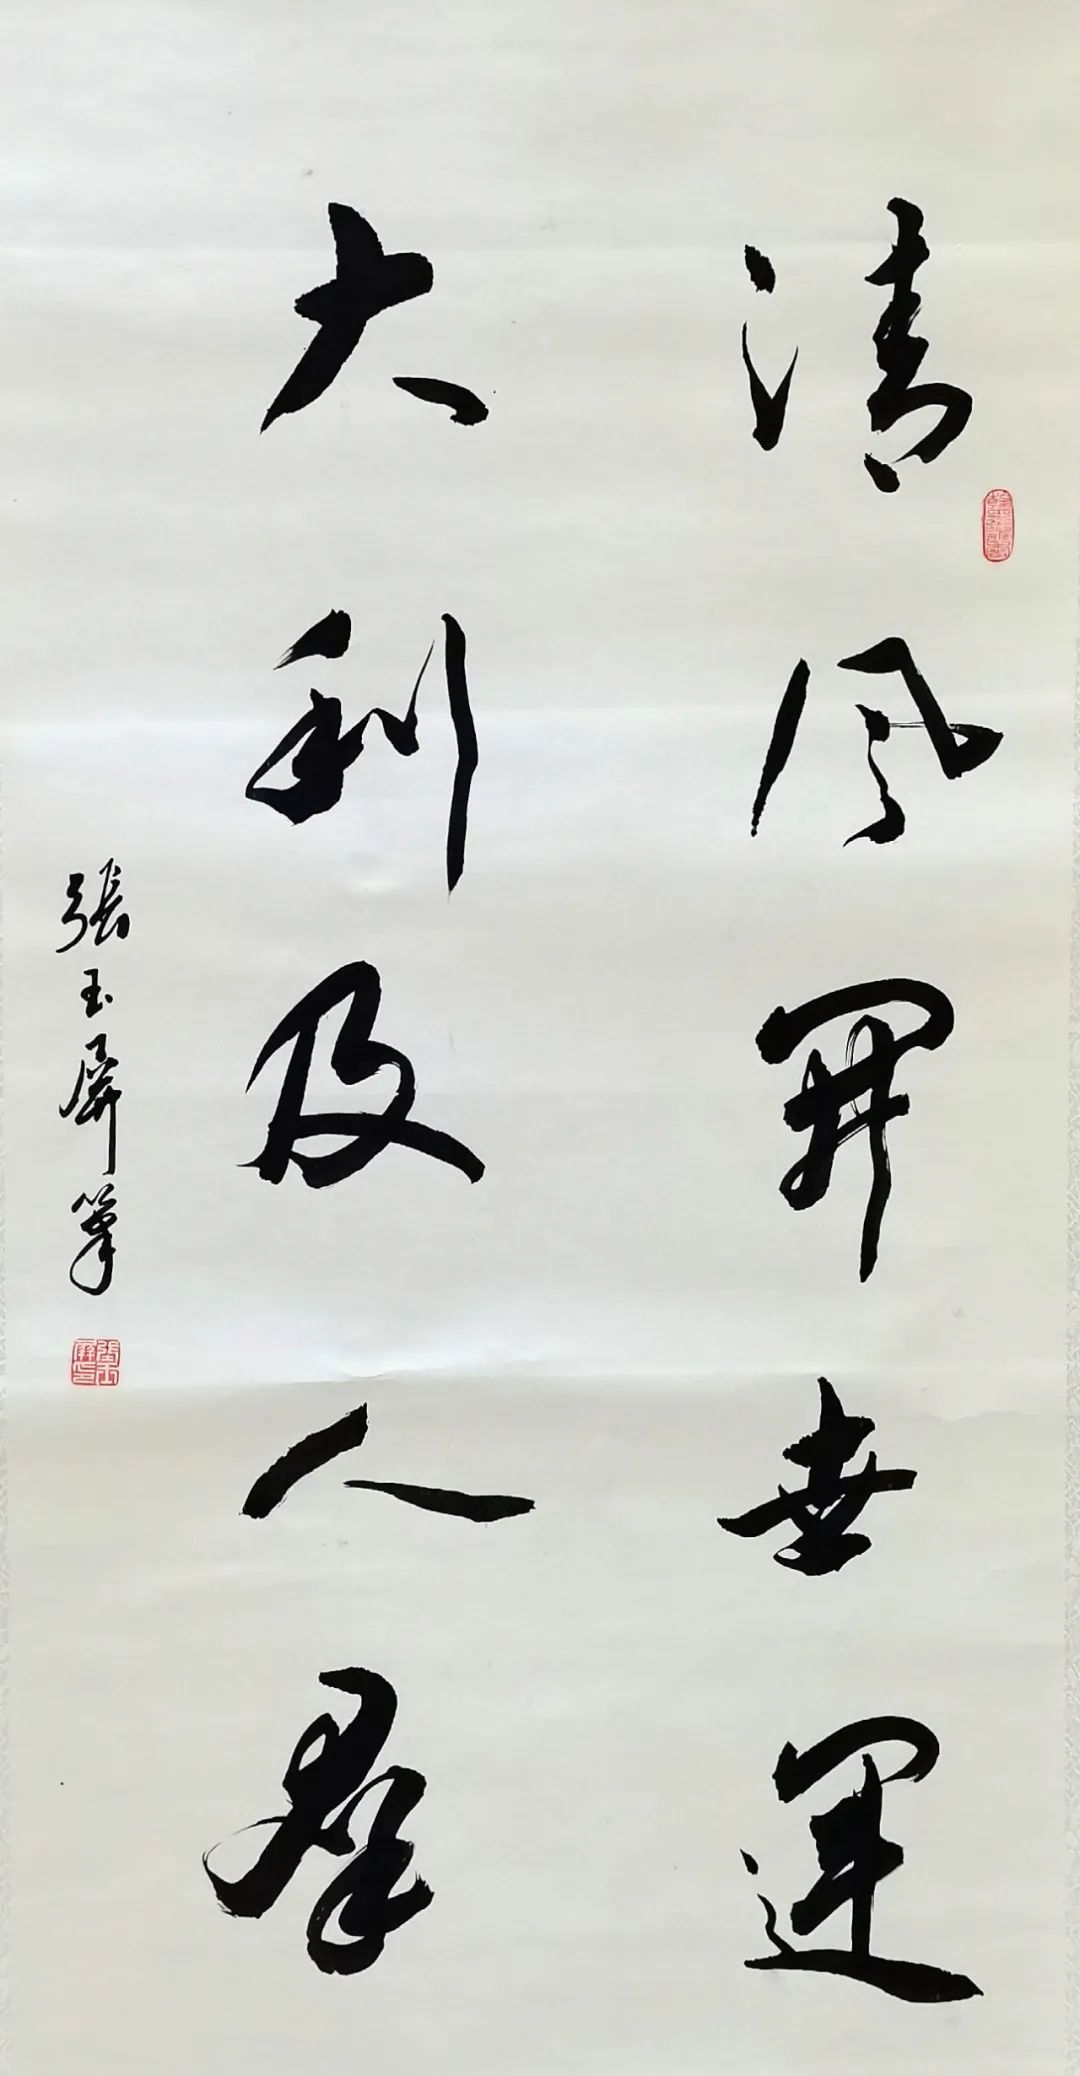 清風開世運
大利及人群
張玉屏筆